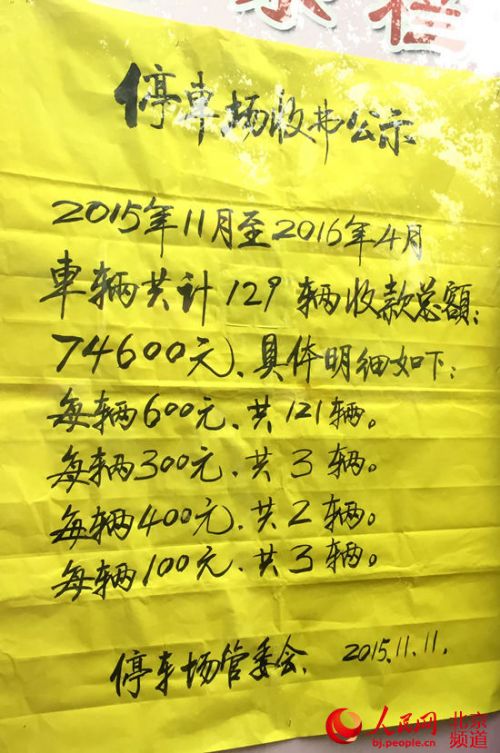 停車场收弗公示
2015年11月至2016年4月
車辆共计129辆收款总额:
74600元、具体明细如下:
每辆600元、共121辆。
每辆300元、共3辆。
每辆400元、共2辆。
每辆100元、共3辆。
停车场管委会、2015.11.11.
人民网 北京频道
bj.people.cn